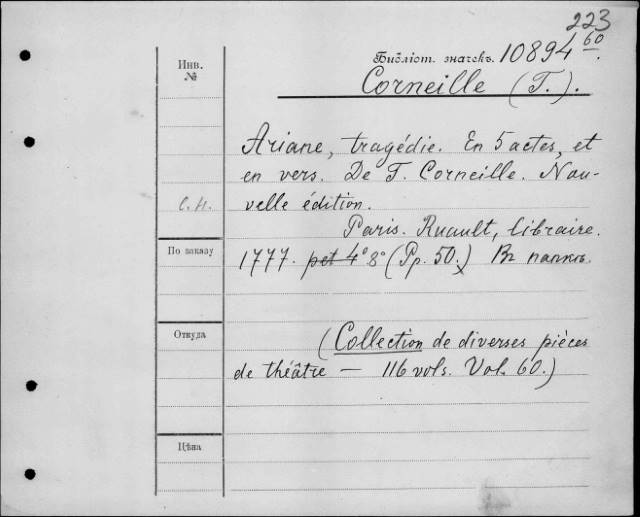 223
Инв.
№
Библіот. значекъ. 10894 60.
Corneille (T.).
Ariane, tragédie. En 5 actes, et
en vers. De T. Corneille. Nou-
velle édition.
Paris. Ruault, libraire.
По заказу
1777. pet 4° 8° (Pp. 50.) Въ папкѣ.
Откуда
(Collection de diverses pièces
de théâtre — 116 vols. Vol. 60.)
Цѣна